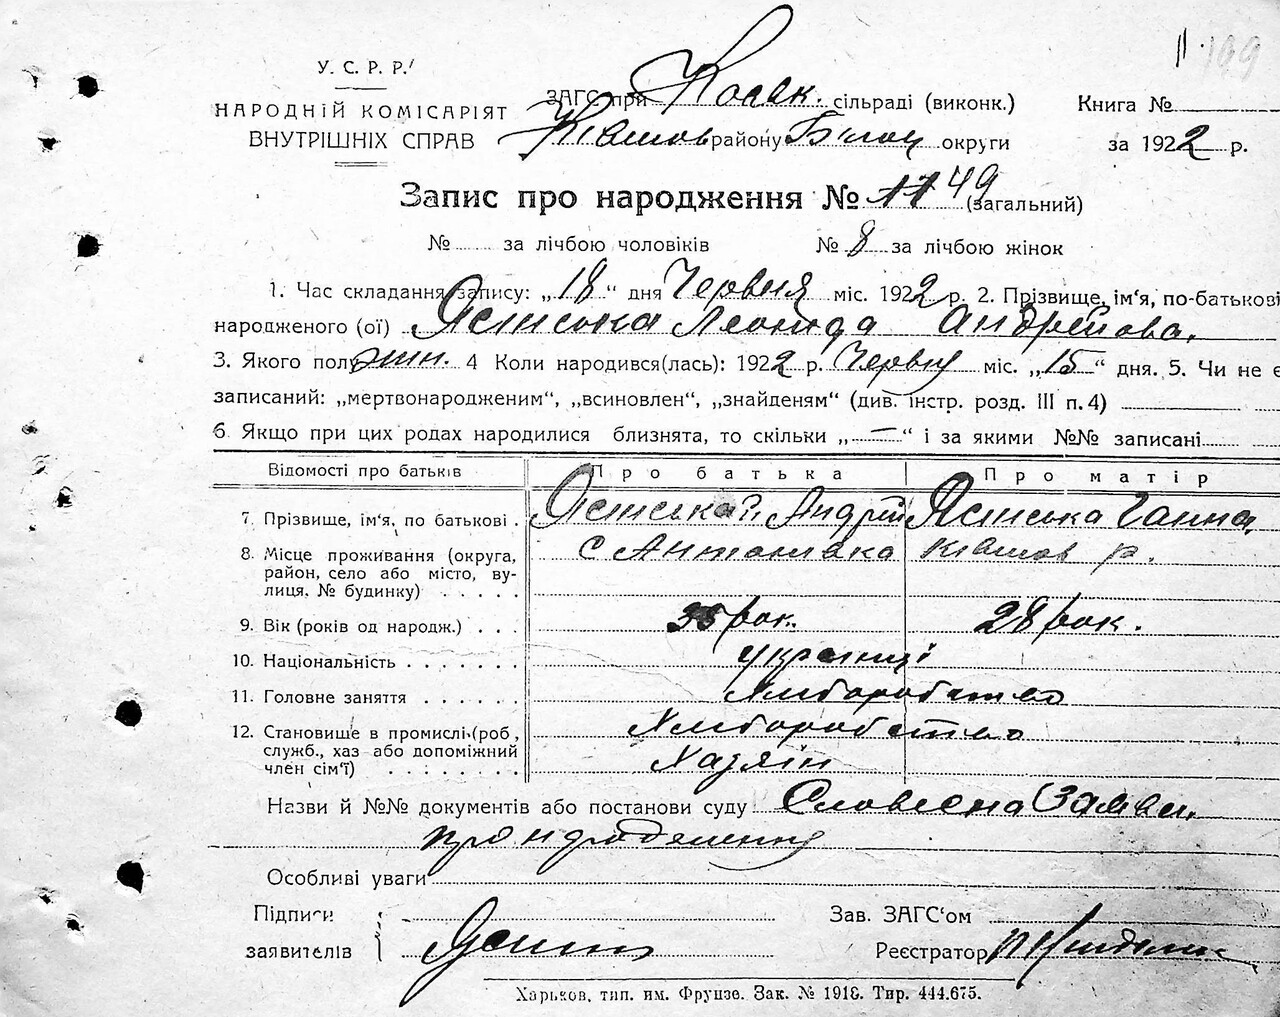 199
У. С. Р. Р.
НАРОДНІЙ КОМІСАРІЯТ
ВНУТРІШНІХ СПРАВ
ЗАГС при Косяк. сільраді (виконк.)
Кишов району Білоц округи
Книга №
за 1922 р.
Запис про народження № 11 49 (загальний)
№ за лічбою чоловіків № 8 за лічбою жінок
1. Час складання запису: „18“ дня Червня міс. 1922 р. 2. Прізвище, ім‘я, по-батькові
народженого (ої) Ясінська Леоніда Андрейова.
3. Якого полу жін. 4 Коли народився(лась): 1922 р. Червня міс. „15“ дня. 5. Чи не є
записаний: „мертвонародженим“, „всиновлен“, „знайденям“ (див. інстр. розд. III п. 4)
6. Якщо при цих родах народилися близнята, то скільки „—“ і за якими №№ записані
Відомості про батьків Про батька Про матір
7. Прізвище, ім‘я, по батькові . Ясінський Андрій Ясінська Ганна.
8. Місце проживання (округа, с Антонівка Кишов р.
район, село або місто, ву-
лиця, № будинку) . . . . .
9. Вік (років од народж.) . . . 35 рок. 28 рок.
10. Національність . . . . . . . українці
11. Головне заняття . . . . . . Хліборобство
12. Становище в промислі (роб, Хліборобство
служб., хаз або допоміжний
член сім‘ї) . . . . . . . Хазяїн
Назви й №№ документів або постанови суду Словесна Заяви.
про народження
Особливі уваги
Підписи
заявителів
Зав. ЗАГС‘ом
Реєстратор
Харьков, тип. им. Фрунзе. Зак. № 1918. Тир. 444.675.